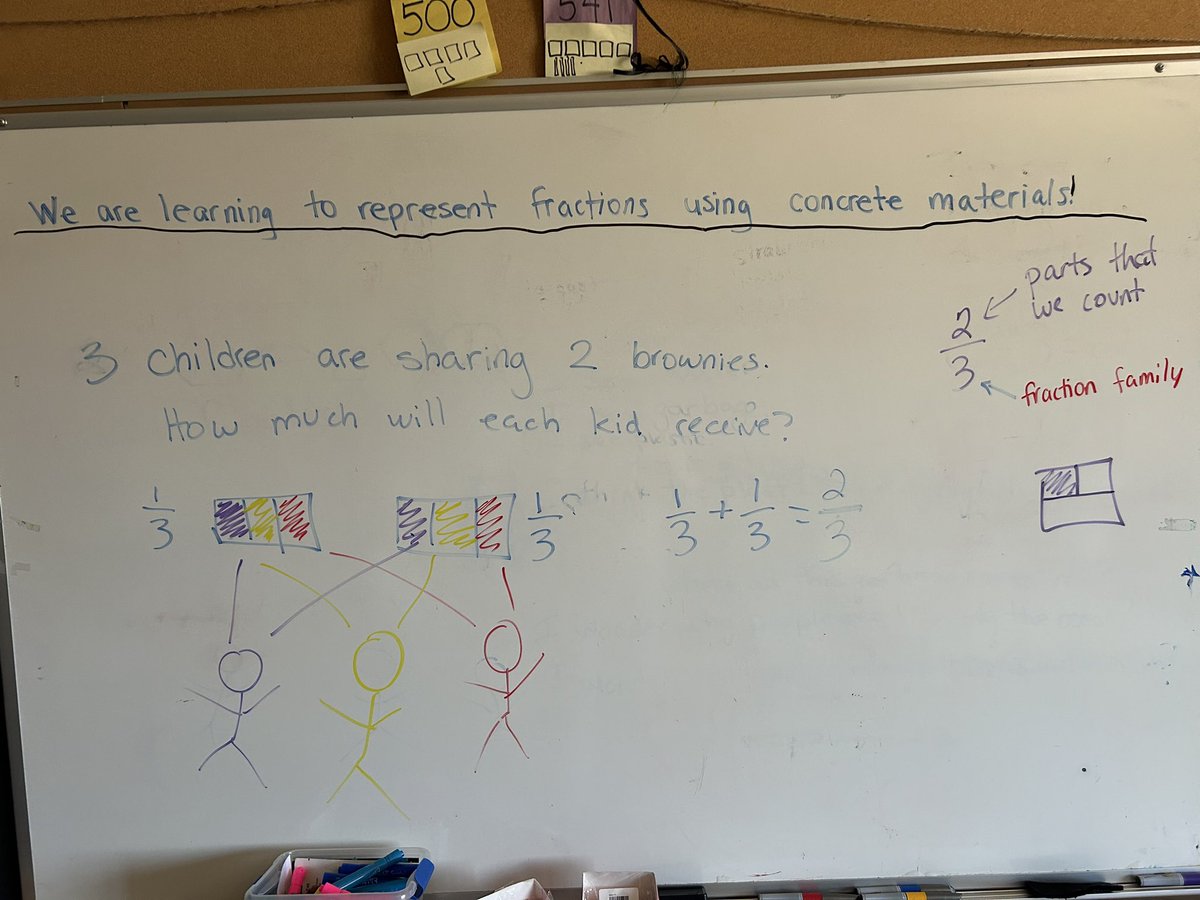 500
541
We are learning to represent fractions using concrete materials!
parts that
we count
2
3
fraction family
3 children are sharing 2 brownies.
How much will each kid receive?
1/3
1/3
1/3 + 1/3 = 2/3